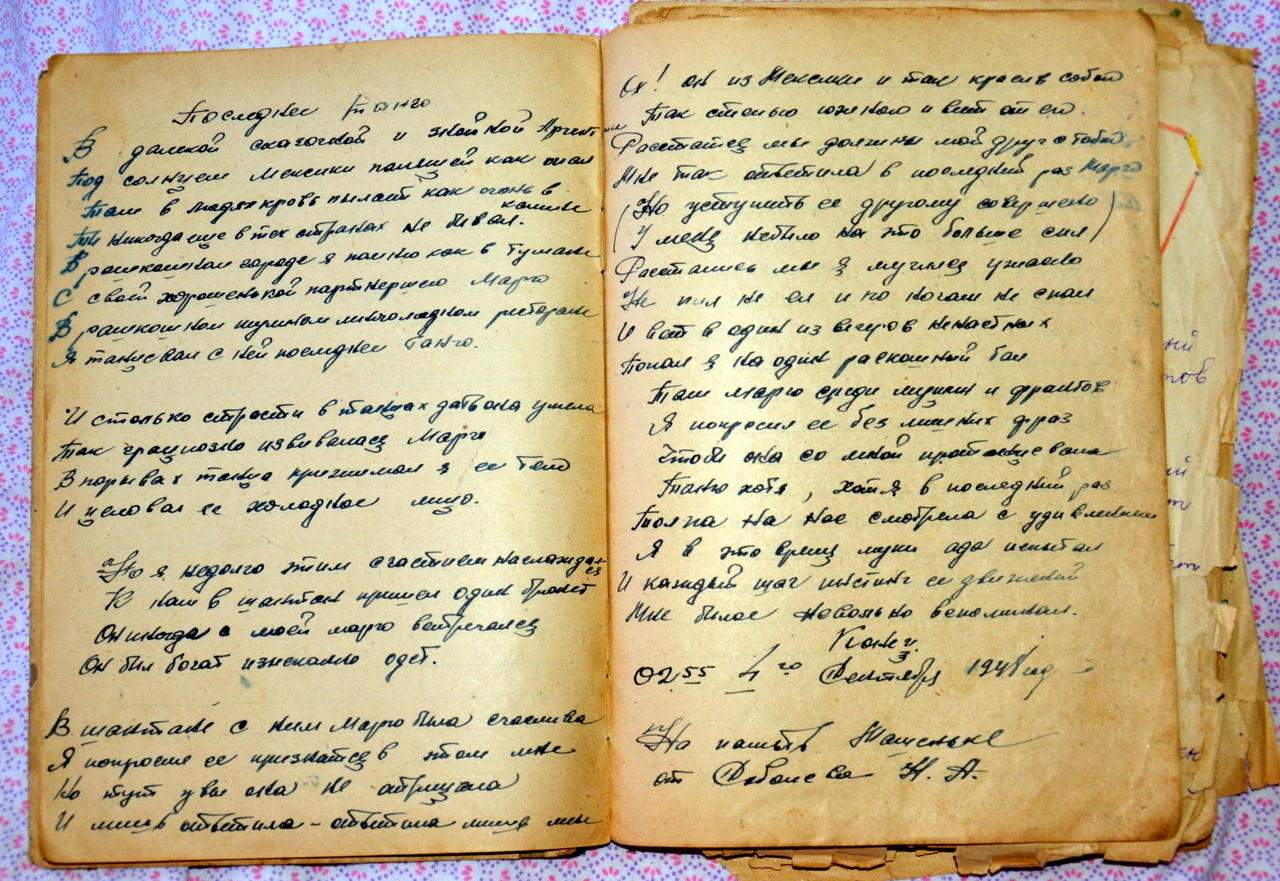 Последнее танго
В далекой сказочной и знойной Аргентине
Под солнцем Мексики палящей как опал
Там в людях кровь пылает как огонь в
камине
Ты никогда еще в тех странах не бывал.
В рошкошном городе я помню как в тумане
С свой хорошенькой партнершею Марго
В рошкошном шумном ресторане
Я танцевал с ней последнее Танго.
И столько страсти в танцах дать она умела
Так грациозно извивалась Марго
В порывах танца прижимал я ее тело
И целовал ее холодное лицо.
Но я недолго этим счастьем наслаждался
К нам в шантан пришел один брюнет
Он иногда с моей марго встречался
Он был богат изискано одет.
В шантане с ним Марго была счаслива
Я попросил ее признаться в этом мне
Но тут увы она не отрицала
И лишь ответила - ответила лишь мне
Ох! он из Мексики и так красив собой
Так степью южною и веит от его.
Расстатся мы должны мой друг с тобой
Мне так ответила в последний раз Марго
(Но уступить ее другому совершено
У меня небыло на это больше сил)
Расстались мы я мучился ужасно
Не пил не ел и по ночам не спал
И вот в один из вечеров ненастных
Попал я на один раскошний бал
Там Марго среди мужчин и франтов
Я попросил ее без лишних фраз
Чтоби она со мной протанцевала
Танго хотя, хотя в последний раз.
Толпа на нас смотрела с удивлением
Я в это время муки ада испытал
И каждый шаг ее движений
Мне былое невольно вспоминал.
Конец.
0255 4го Сентября 1948 год
На память Машеньке
от Соболева Н. А.